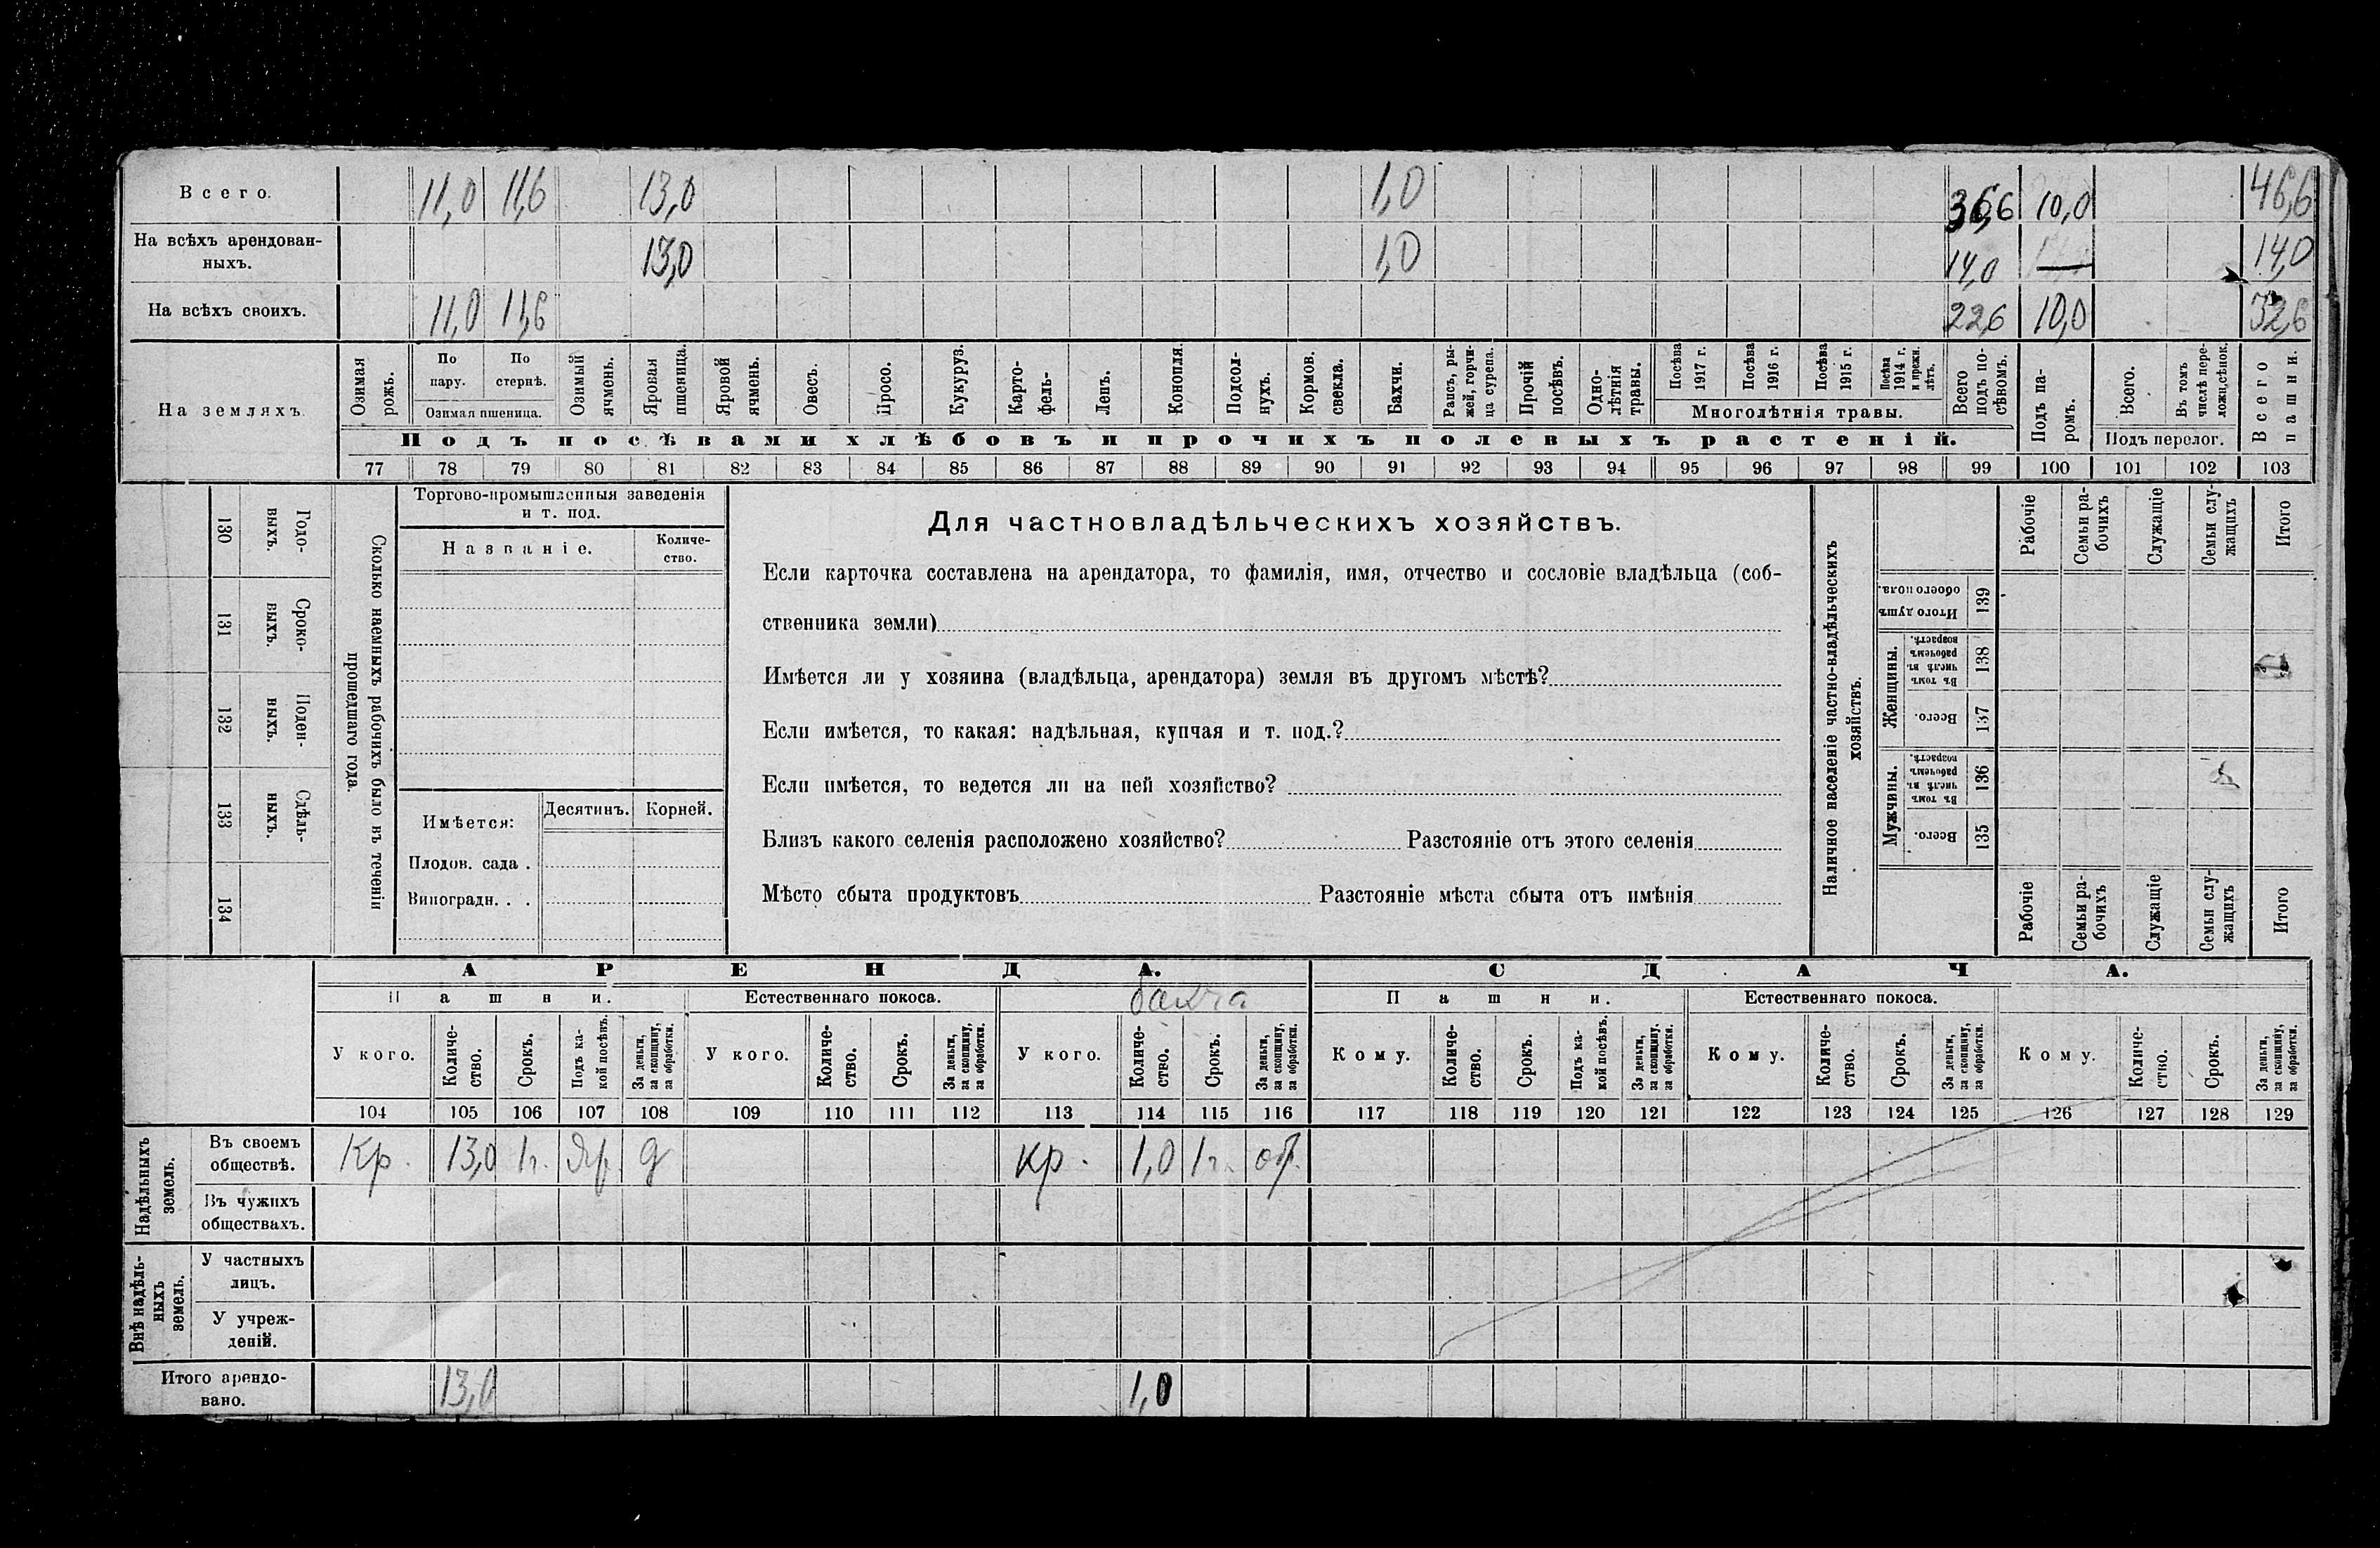 Всего. 11,0 11,6 13,0 1,0 36,6 10,0 46,6
На всѣхъ арендован-
ныхъ. 13,0 1,0 14,0 — 14,0
На всѣхъ своихъ. 11,0 11,6 22,6 10,0 32,6
На земляхъ.
Озимая рожь.
По пару.
По стернѣ.
Озимая пшеница.
Озимый ячмень.
Яровая пшеница.
Яровой ячмень.
Овесъ.
Просо.
Кукуруз.
Карто-
фель-
Ленъ.
Конопля.
Подсол-
нухъ.
Кормов.
свекла.
Бахчи.
Рапсъ, ры-
жей, горчи-
ца сурепа.
Прочій
посѣвъ.
Одно-
лѣтнія
травы.
Посѣва
1917 г.
Посѣва
1916 г.
Посѣва
1915 г.
Посѣва
1914 г.
и прежн.
лѣтъ.
Многолѣтнія травы.
Всего
подъ по-
сѣвомъ.
Подъ па-
ромъ.
Всего.
Въ томъ
числѣ пере-
лож.сѣнок.
Подъ перелог.
Всего
пашни.
Подъ посѣвами хлѣбовъ и прочихъ полевыхъ растеній.
77 78 79 80 81 82 83 84 85 86 87 88 89 90 91 92 93 94 95 96 97 98 99 100 101 102 103
130 Годо-
выхъ.
131 Сроко-
выхъ.
132 Поден-
ныхъ.
133 Сдѣль-
ныхъ.
134
Сколько наемныхъ рабочихъ было въ теченіи
прошедшаго года.
Торгово-промышленныя заведенія
и т. под.
Названіе.
Количе-
ство.
Имѣется: Десятинъ. Корней.
Плодов. сада .
Виноградн. . .
Для частновладѣльческихъ хозяйствъ.
Если карточка составлена на арендатора, то фамилія, имя, отчество и сословіе владѣльца (соб-
ственника земли)
Имѣется ли у хозяина (владѣльца, арендатора) земля въ другомъ мѣстѣ?
Если имѣется, то какая: надѣльная, купчая и т. под.?
Если имѣется, то ведется ли на ней хозяйство?
Близъ какого селенія расположено хозяйство? Разстояніе отъ этого селенія
Мѣсто сбыта продуктовъ Разстояніе мѣста сбыта отъ имѣнія
Наличное населеніе частно-владѣльческихъ
хозяйствъ.
Рабочіе
Семьи ра-
бочихъ
Служащіе
Семьи слу-
жащихъ
Итого
Итого душъ
обоего пола.
139
Женщины.
Въ томъ
числѣ въ
рабочемъ
возрастѣ.
138
Всего.
137
Мужчины.
Въ томъ
числѣ въ
рабочемъ
возрастѣ.
136
Всего.
135
Рабочіе
Семьи ра-
бочихъ
Служащіе
Семьи слу-
жащихъ
Итого
АРЕНДА. СДАЧА.
Пашни. Естественнаго покоса. бахча Пашни. Естественнаго покоса.
У кого.
Количе-
ство.
Срокъ.
Подъ ка-
кой посѣвъ.
За деньги,
за скопщину,
за обработки.
У кого.
Количе-
ство.
Срокъ.
За деньги,
за скопщину,
за обработки.
У кого.
Количе-
ство.
Срокъ.
За деньги,
за скопщину,
за обработки.
Кому.
Количе-
ство.
Срокъ.
Подъ ка-
кой посѣвъ.
За деньги,
за скопщину,
за обработки.
Кому.
Количе-
ство.
Срокъ.
За деньги,
за скопщину,
за обработки.
Кому.
Количе-
ство.
Срокъ.
За деньги,
за скопщину,
за обработки.
104 105 106 107 108 109 110 111 112 113 114 115 116 117 118 119 120 121 122 123 124 125 126 127 128 129
Надѣльныхъ
земель.
Въ своемъ
обществѣ. Кр. 13,0 1г. Яр. д кр. 1,0 1г. об.
Въ чужихъ
обществахъ.
Внѣ надѣль-
ныхъ
земель.
У частныхъ
лицъ.
У учреж-
деній.
Итого арендо-
вано. 13,0 1,0